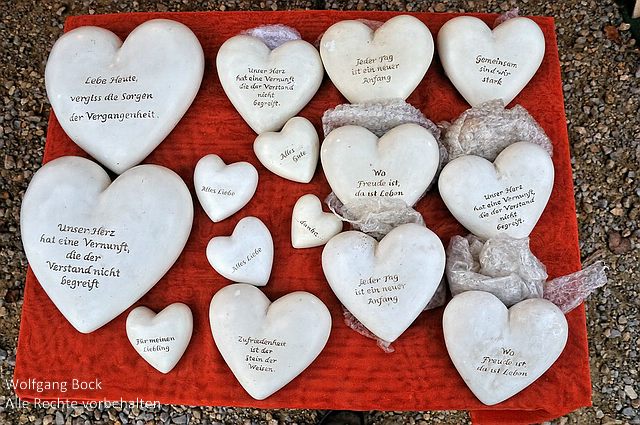 Lebe Heute,
vergiss die Sorgen
der Vergangenheit.
Unser Herz
hat eine Vernunft,
die der Verstand
nicht
begreift.
Jeder Tag
ist ein neuer
Anfang
Gemeinsam
sind wir
stark
Alles
Gute
Alles Liebe
Wo
Freude ist,
da ist Leben
Unser Herz
hat eine Vernunft,
die der Verstand
nicht
begreift.
Unser Herz
hat eine Vernunft,
die der
Verstand nicht
begreift
danke.
Alles Liebe
Jeder Tag
ist ein neuer
Anfang
Für meinen
Liebling
Zufriedenheit
ist der
Stein der
Weisen.
Wo
Freude ist,
da ist Leben
Wolfgang Bock
Alle Rechte vorbehalten